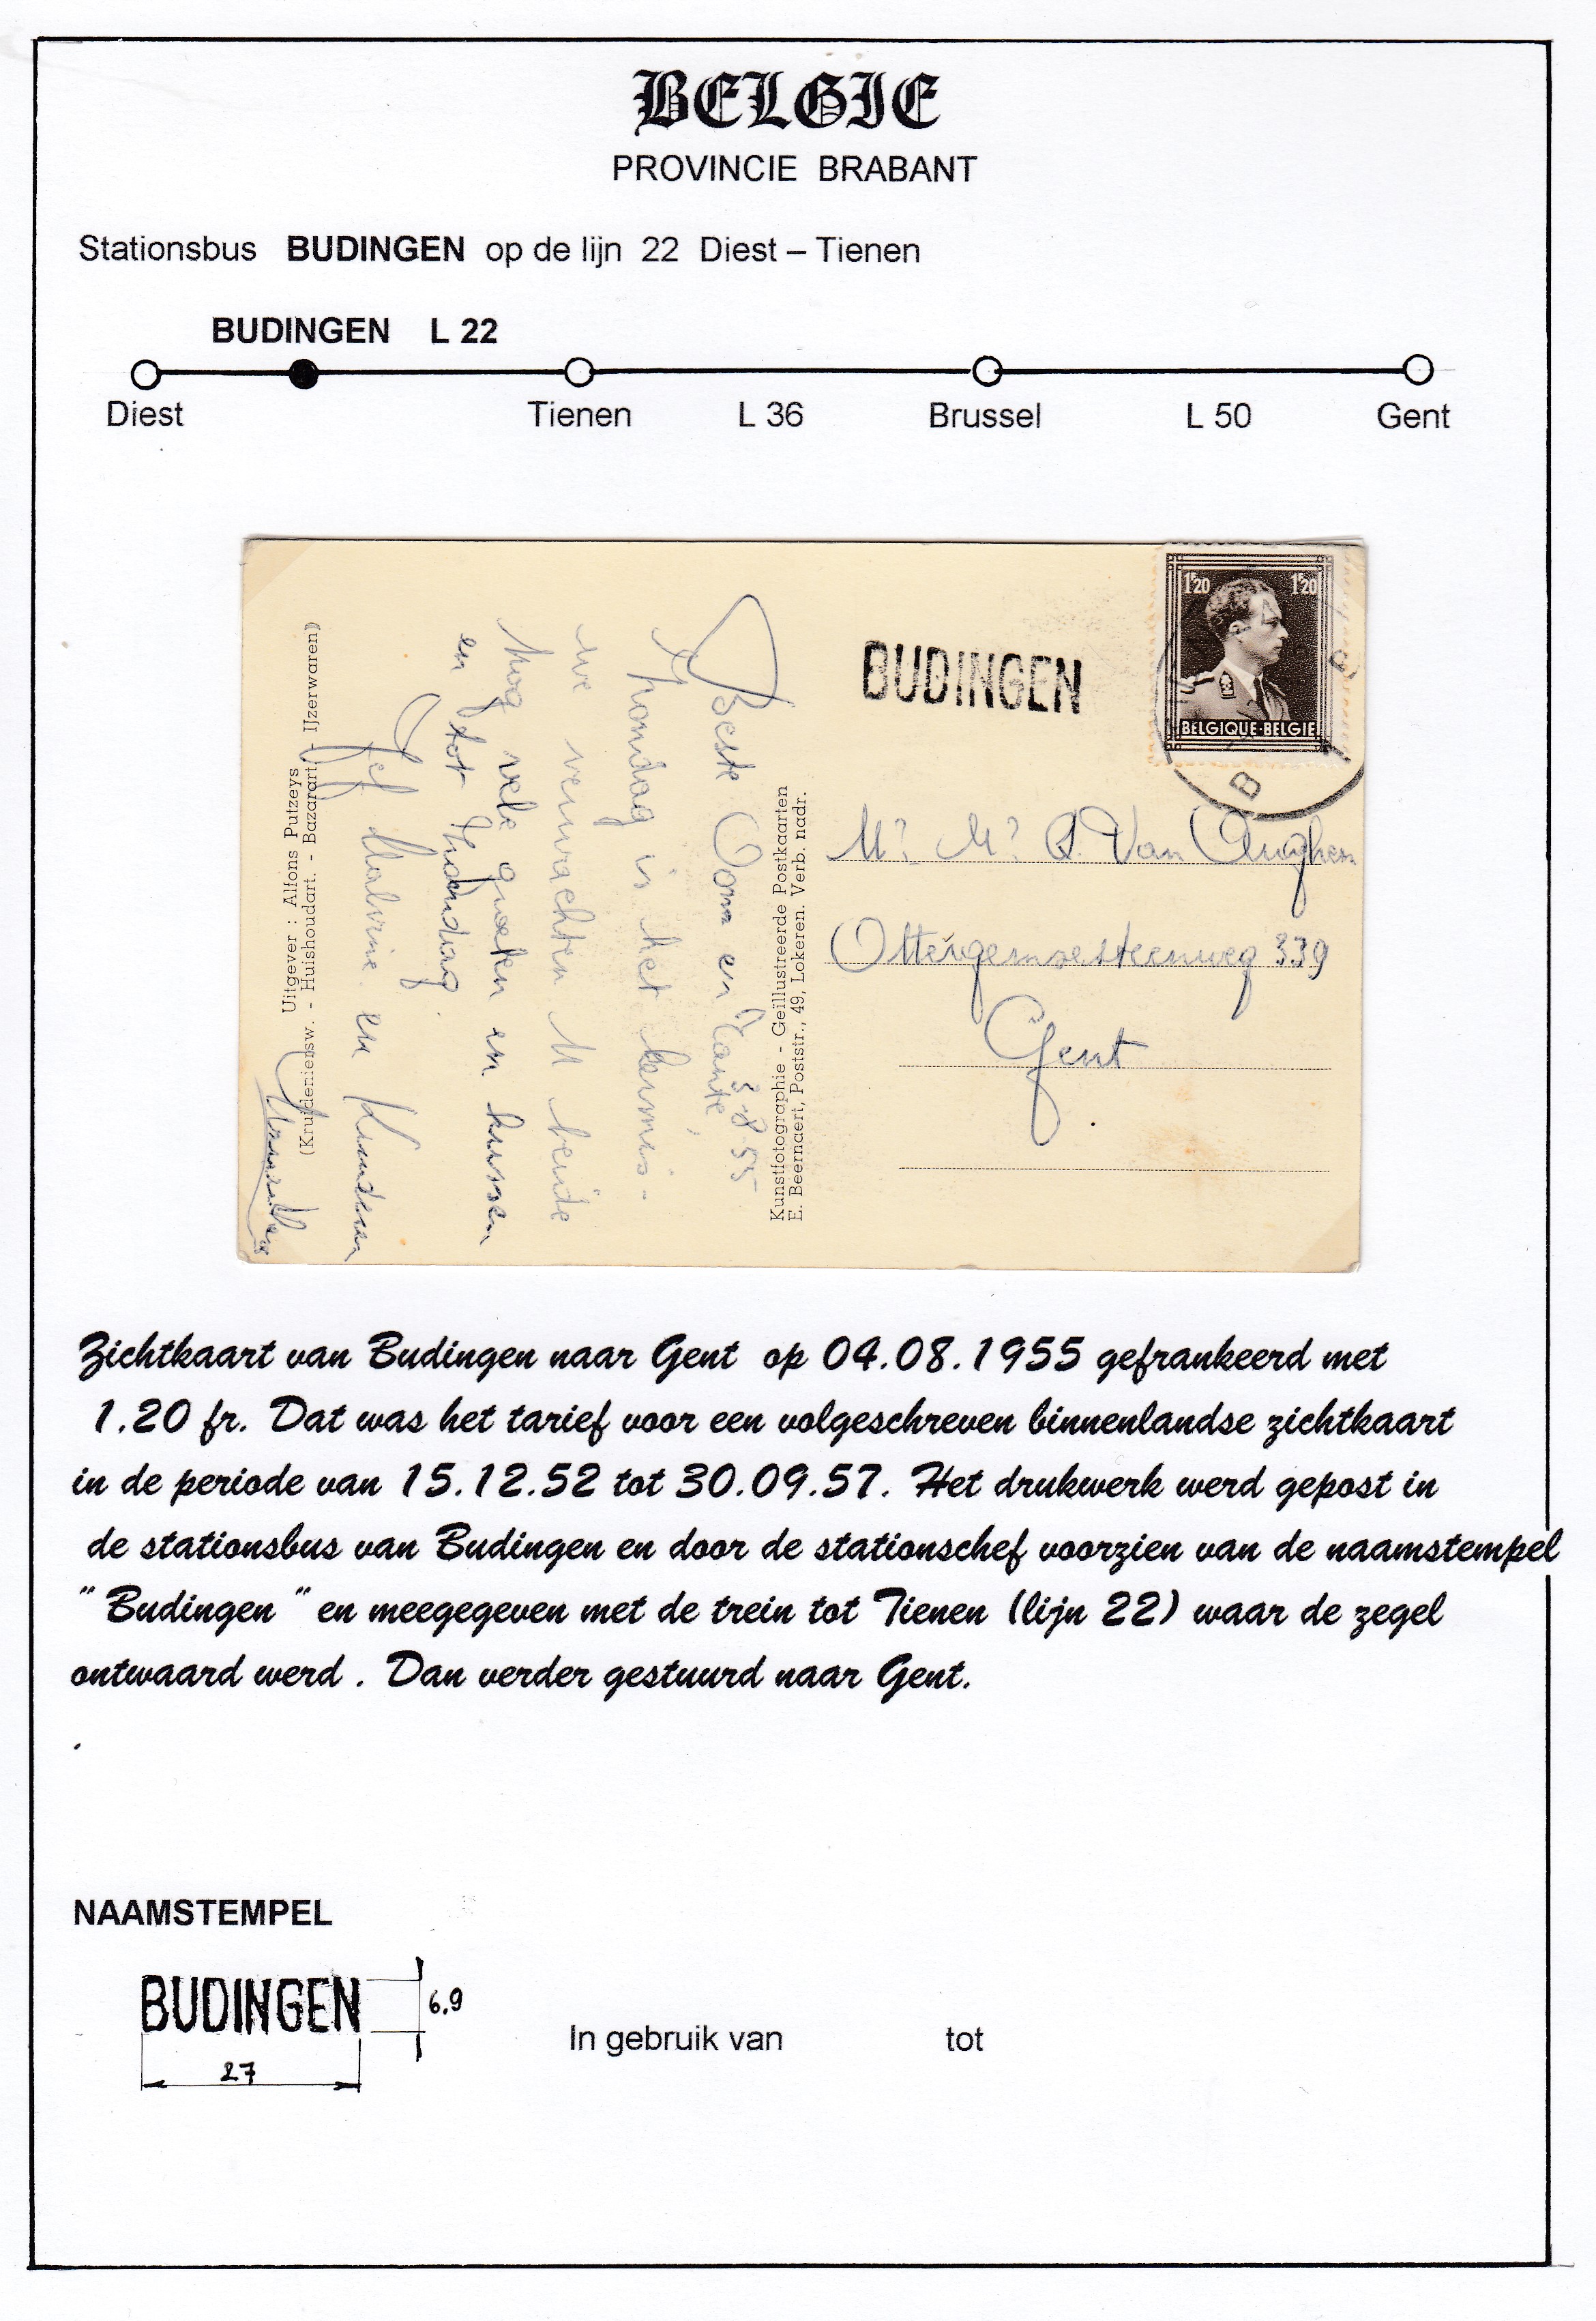 BELGIE
PROVINCIE BRABANT
Stationsbus BUDINGEN op de lijn 22 Diest – Tienen
BUDINGEN L 22
Diest Tienen L 36 Brussel L 50 Gent
1F20 1F20
BELGIQUE-BELGIE
B
BUDINGEN
Mr Mr Van
Ottergemsesteenweg 339
Gent
Kunstfotographie - Geïllustreerde Postkaarten
E. Beernaert, Poststr., 49, Lokeren. Verb. nadr.
3-8-55
Beste Oom en Tante,
is het kermis-
we verwachten U beide
Nog vele groeten en kussen
en tot
Jef Malvine en Kinderen
Uitgever : Alfons Putzeys
(Kruideniersw. - Huishoudart. - Bazarart. - IJzerwaren)
Zichtkaart van Budingen naar Gent op 04.08.1955 gefrankeerd met
1.20 fr. Dat was het tarief voor een volgeschreven binnenlandse zichtkaart
in de periode van 15.12.52 tot 30.09.57. Het drukwerk werd gepost in
de stationsbus van Budingen en door de stationschef voorzien van de naamstempel
" Budingen " en meegegeven met de trein tot Tienen (lijn 22) waar de zegel
ontwaard werd . Dan verder gestuurd naar Gent.
.
NAAMSTEMPEL
BUDINGEN
6,9
27
In gebruik van tot